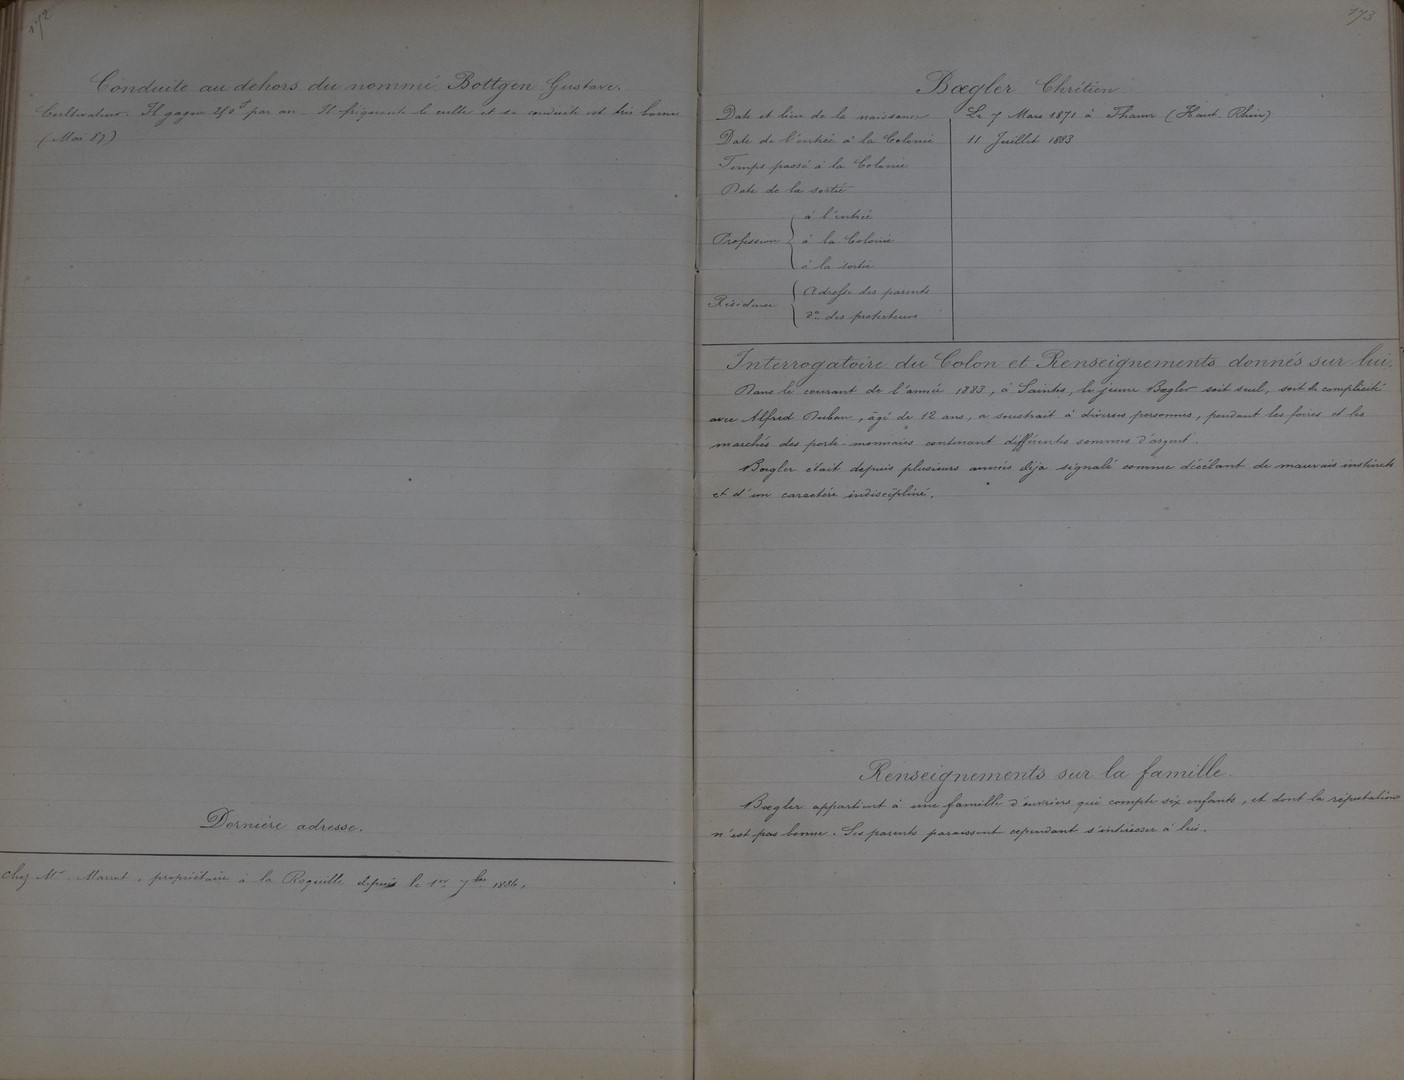 172
Conduite au dehors du nommé Bottgen Gustave.
Cultivateur. Il gagne 250f par an. Il fréquente le culte et sa conduite est très bonne
(Mai 87)
Dernière adresse.
Chez Mr Marrot, propriétaire à la Roquille depuis le 1er 7bre 1886.
173
Bœgler Chrétien
Date et lieu de la naissance Le 7 Mars 1871 à Thann (Haut-Rhin)
Date de l'entrée à la Colonie 11 Juillet 1883
Temps passé à la Colonie
Date de la sortie
Profession
à l'entrée
à la Colonie
à la sortie
Résidence
Adresse des parents
do des protecteurs
Interrogatoire du Colon et Renseignements donnés sur lui.
Dans le courant de l'année 1883, à Saintes, le jeune Bœgler soit seul, soit de complicité
avec Alfred Duban, âgé de 12 ans, a soustrait à diverses personnes, pendant les foires et les
marchés des porte-monnaies contenant différentes sommes d'argent.
Bœgler était depuis plusieurs années déja signalé comme décélant de mauvais instincts
et d'un caractère indiscipliné.
Renseignements sur la famille.
Bœgler appartient à une famille d'ouvriers qui compte six enfants, et dont la réputation
n'est pas bonne. Ses parents paraissent cependant s'intéresser à lui.